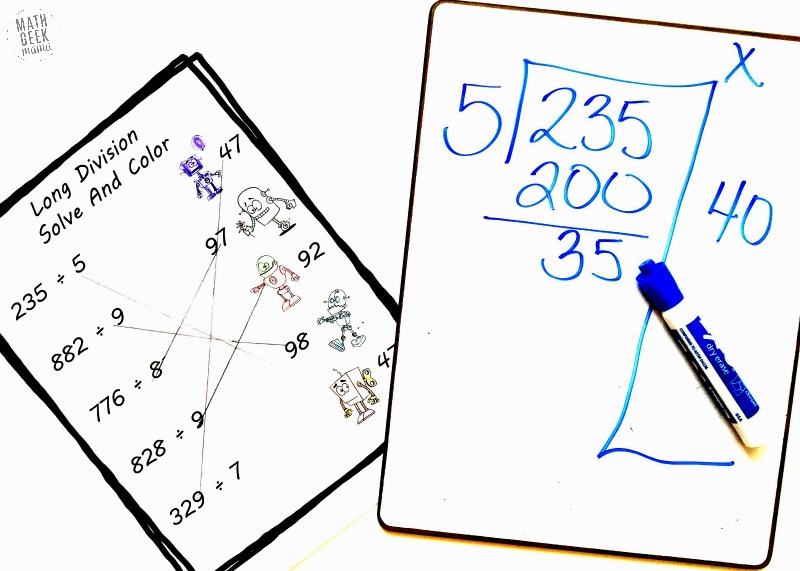 MATH
GEEK
mama
Long Division
Solve And Color
47
97
92
235 ÷ 5
882 ÷ 9
98
776 ÷ 8
47
828 ÷ 9
329 ÷ 7
X
5 235
200
40
35
dry erase